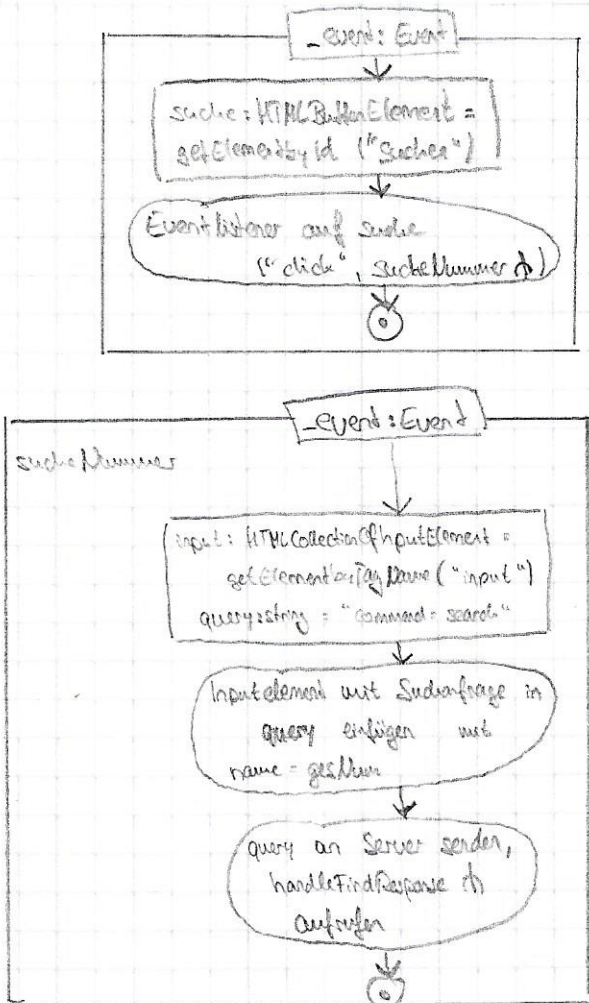 _event: Event
suche: HTMLButtonElement =
getElementById ("suchen")
Eventlistener auf suche
("click", sucheNummer)
_event: Event
sucheNummer
input: HTMLCollectionOfInputElement =
getElementsByTagName ("input")
query:string = "command=search"
Inputelement mit Suchanfrage in
query einfügen mit
name = gesNum
query an Server senden,
handleFindResponse
aufrufen